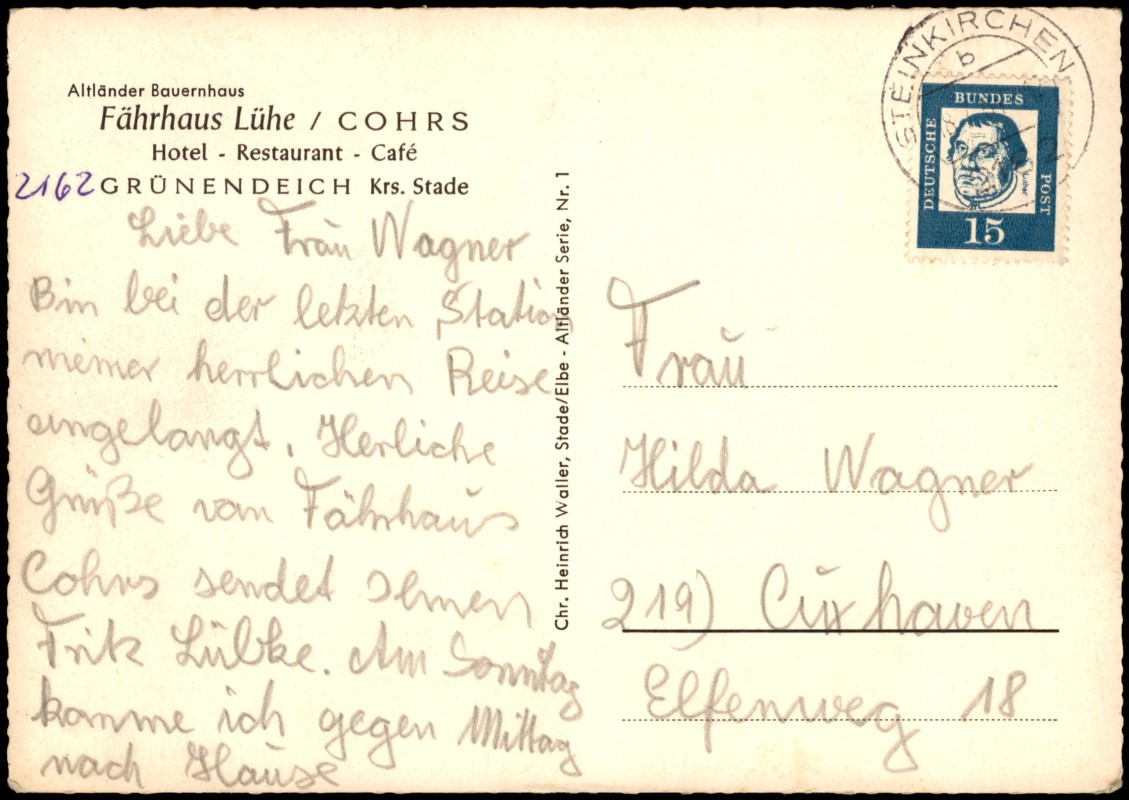 Altländer Bauernhaus
Fährhaus Lühe / COHRS
Hotel - Restaurant - Café
2162 GRÜNENDEICH Krs. Stade
Liebe Frau Wagner
Bin bei der letzten Station
meiner herrlichen Reise
angelangt. Herliche
Grüße von Fährhaus
Cohrs sendet
Fritz Lübke. Am Sonntag
komme ich gegen Mittag
nach Hause
Chr. Heinrich Waller, Stade/Elbe - Altländer Serie, Nr. 1
STEINKIRCHEN
b
DEUTSCHE
BUNDES
POST
15
Frau
Hilda Wagner
219) Cuxhaven
Elfenweg 18